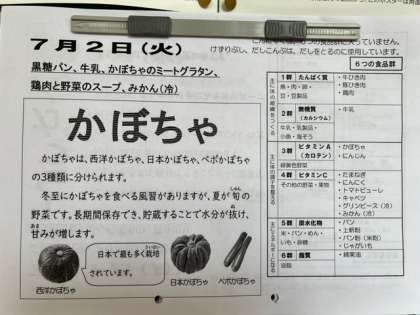 7月2日(火)
黒糖パン、牛乳、かぼちゃのミートグラタン、
鶏肉と野菜のスープ、みかん(冷)
けずりぶし、だしこんぶは、だしをとるのに使用しています。
かぼちゃ
かぼちゃは、西洋かぼちゃ、日本かぼちゃ、ペポかぼちゃ
の3種類に分けられます。
冬至にかぼちゃを食べる風習がありますが、夏が旬の
しゅん
野菜です。長期間保存でき、貯蔵することで水分が抜け、
甘みが増します。
あま
日本で最も多く栽培
さいばい
されています。
西洋かぼちゃ
日本かぼちゃ
ペポかぼちゃ
6つの食品群
主に体の組織をつくる
1群 たんぱく質
魚・肉・卵・
豆・豆製品
・牛ひき肉
・豚ひき肉
・鶏肉
2群 無機質
(カルシウム)
牛乳・乳製品・
小魚・海そう
・牛乳
主に体の調子を整える
3群 ビタミンA
(カロテン)
緑黄色野菜
・かぼちゃ
・にんじん
4群 ビタミンC
その他の野菜・果物
・たまねぎ
・にんにく
・トマトピューレ
・キャベツ
・グリンピース(冷)
・みかん(冷)
5群 炭水化物
米・パン・めん・
いも・砂糖
・パン
・上新粉
・パン粉(米粉)
・じゃがいも
6群 脂質
油脂
・綿実油